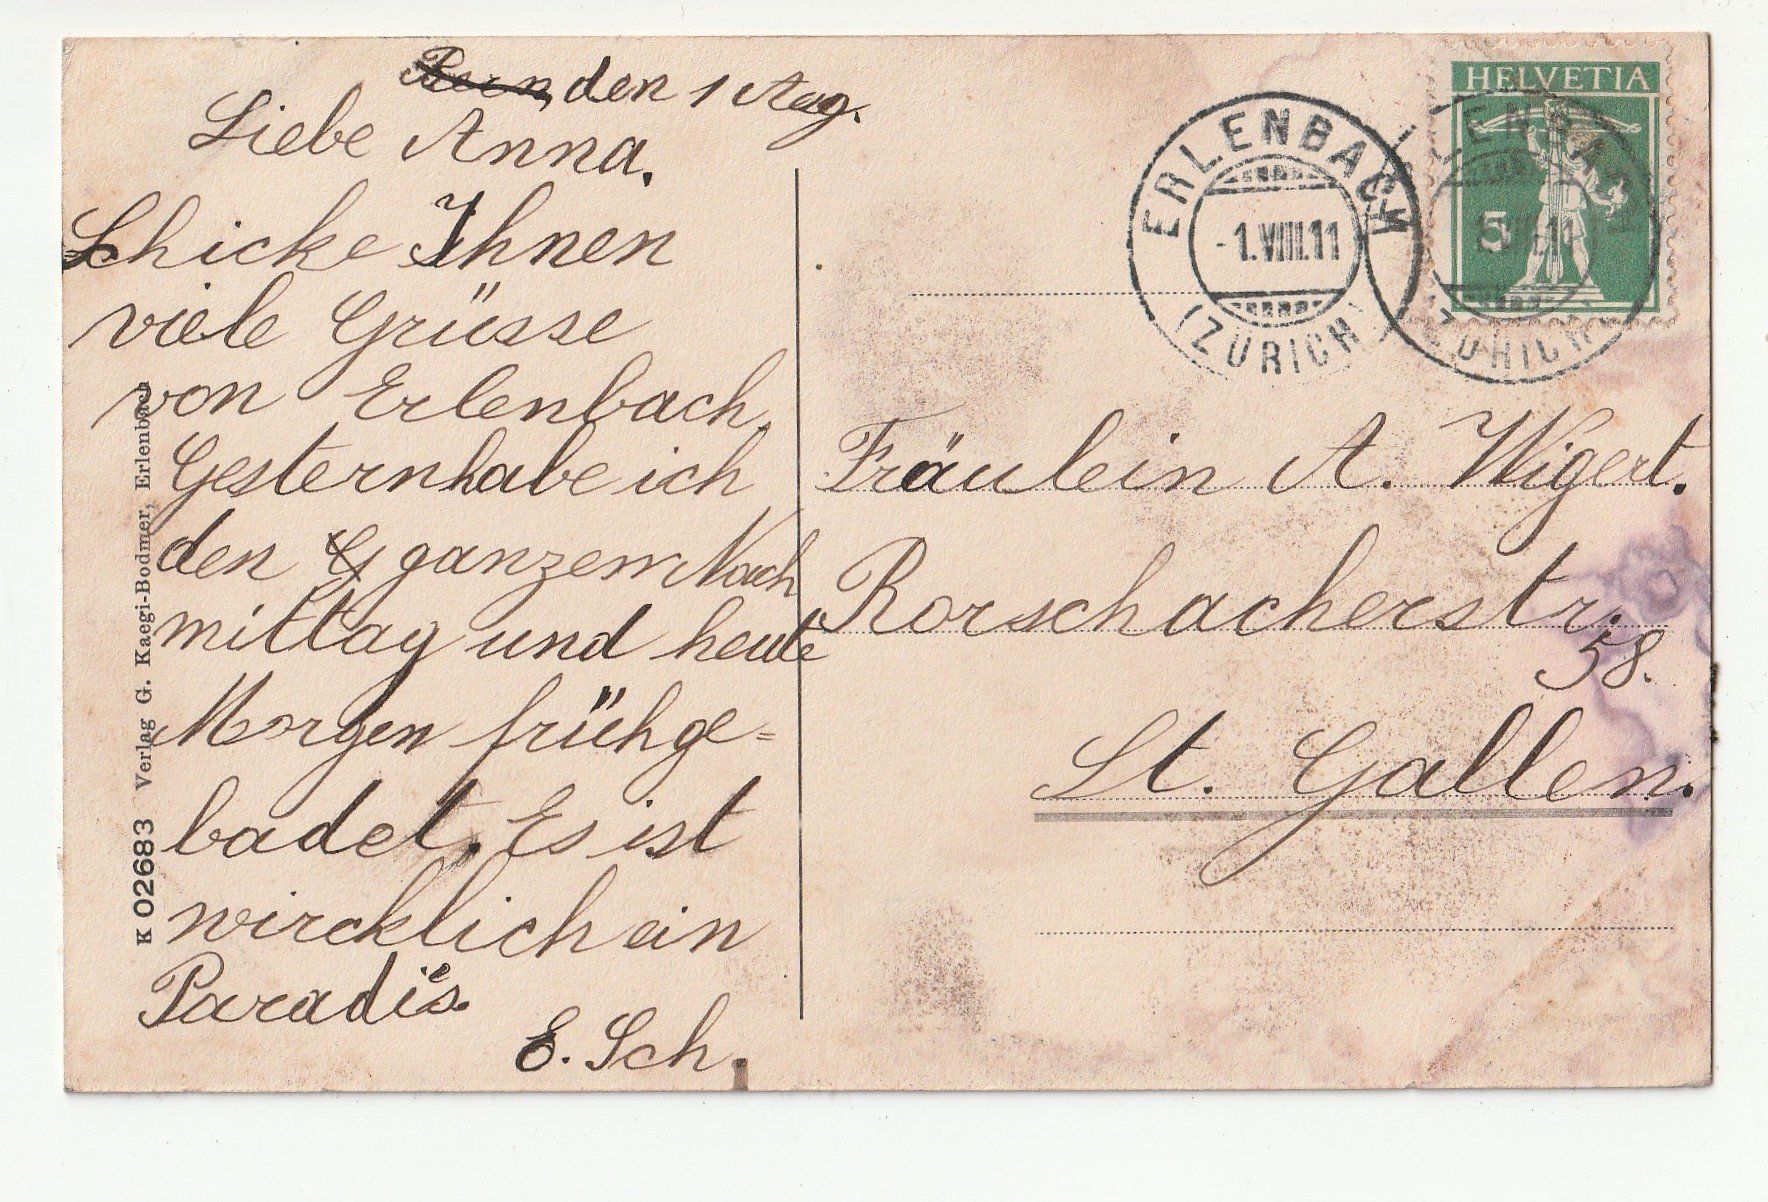 Bern, den 1 Aug.
Liebe Anna.
Schicke Ihnen
viele Grüsse
von Erlenbach.
Gestern habe ich
den G ganzen Nach
mittag und heute
Morgen früh ge=
badet. Es ist
wircklich ein
Paradis.
E. Sch.
K 02683 Verlag G. Kaegi-Bodmer, Erlenbach
HELVETIA
5
ERLENBACH
-1.VIII.11
(ZÜRICH)
ERLENBACH
-1.VIII.11
(ZÜRICH)
Fräulein A. Wigert.
Rorschacherstr.
58.
St. Gallen.